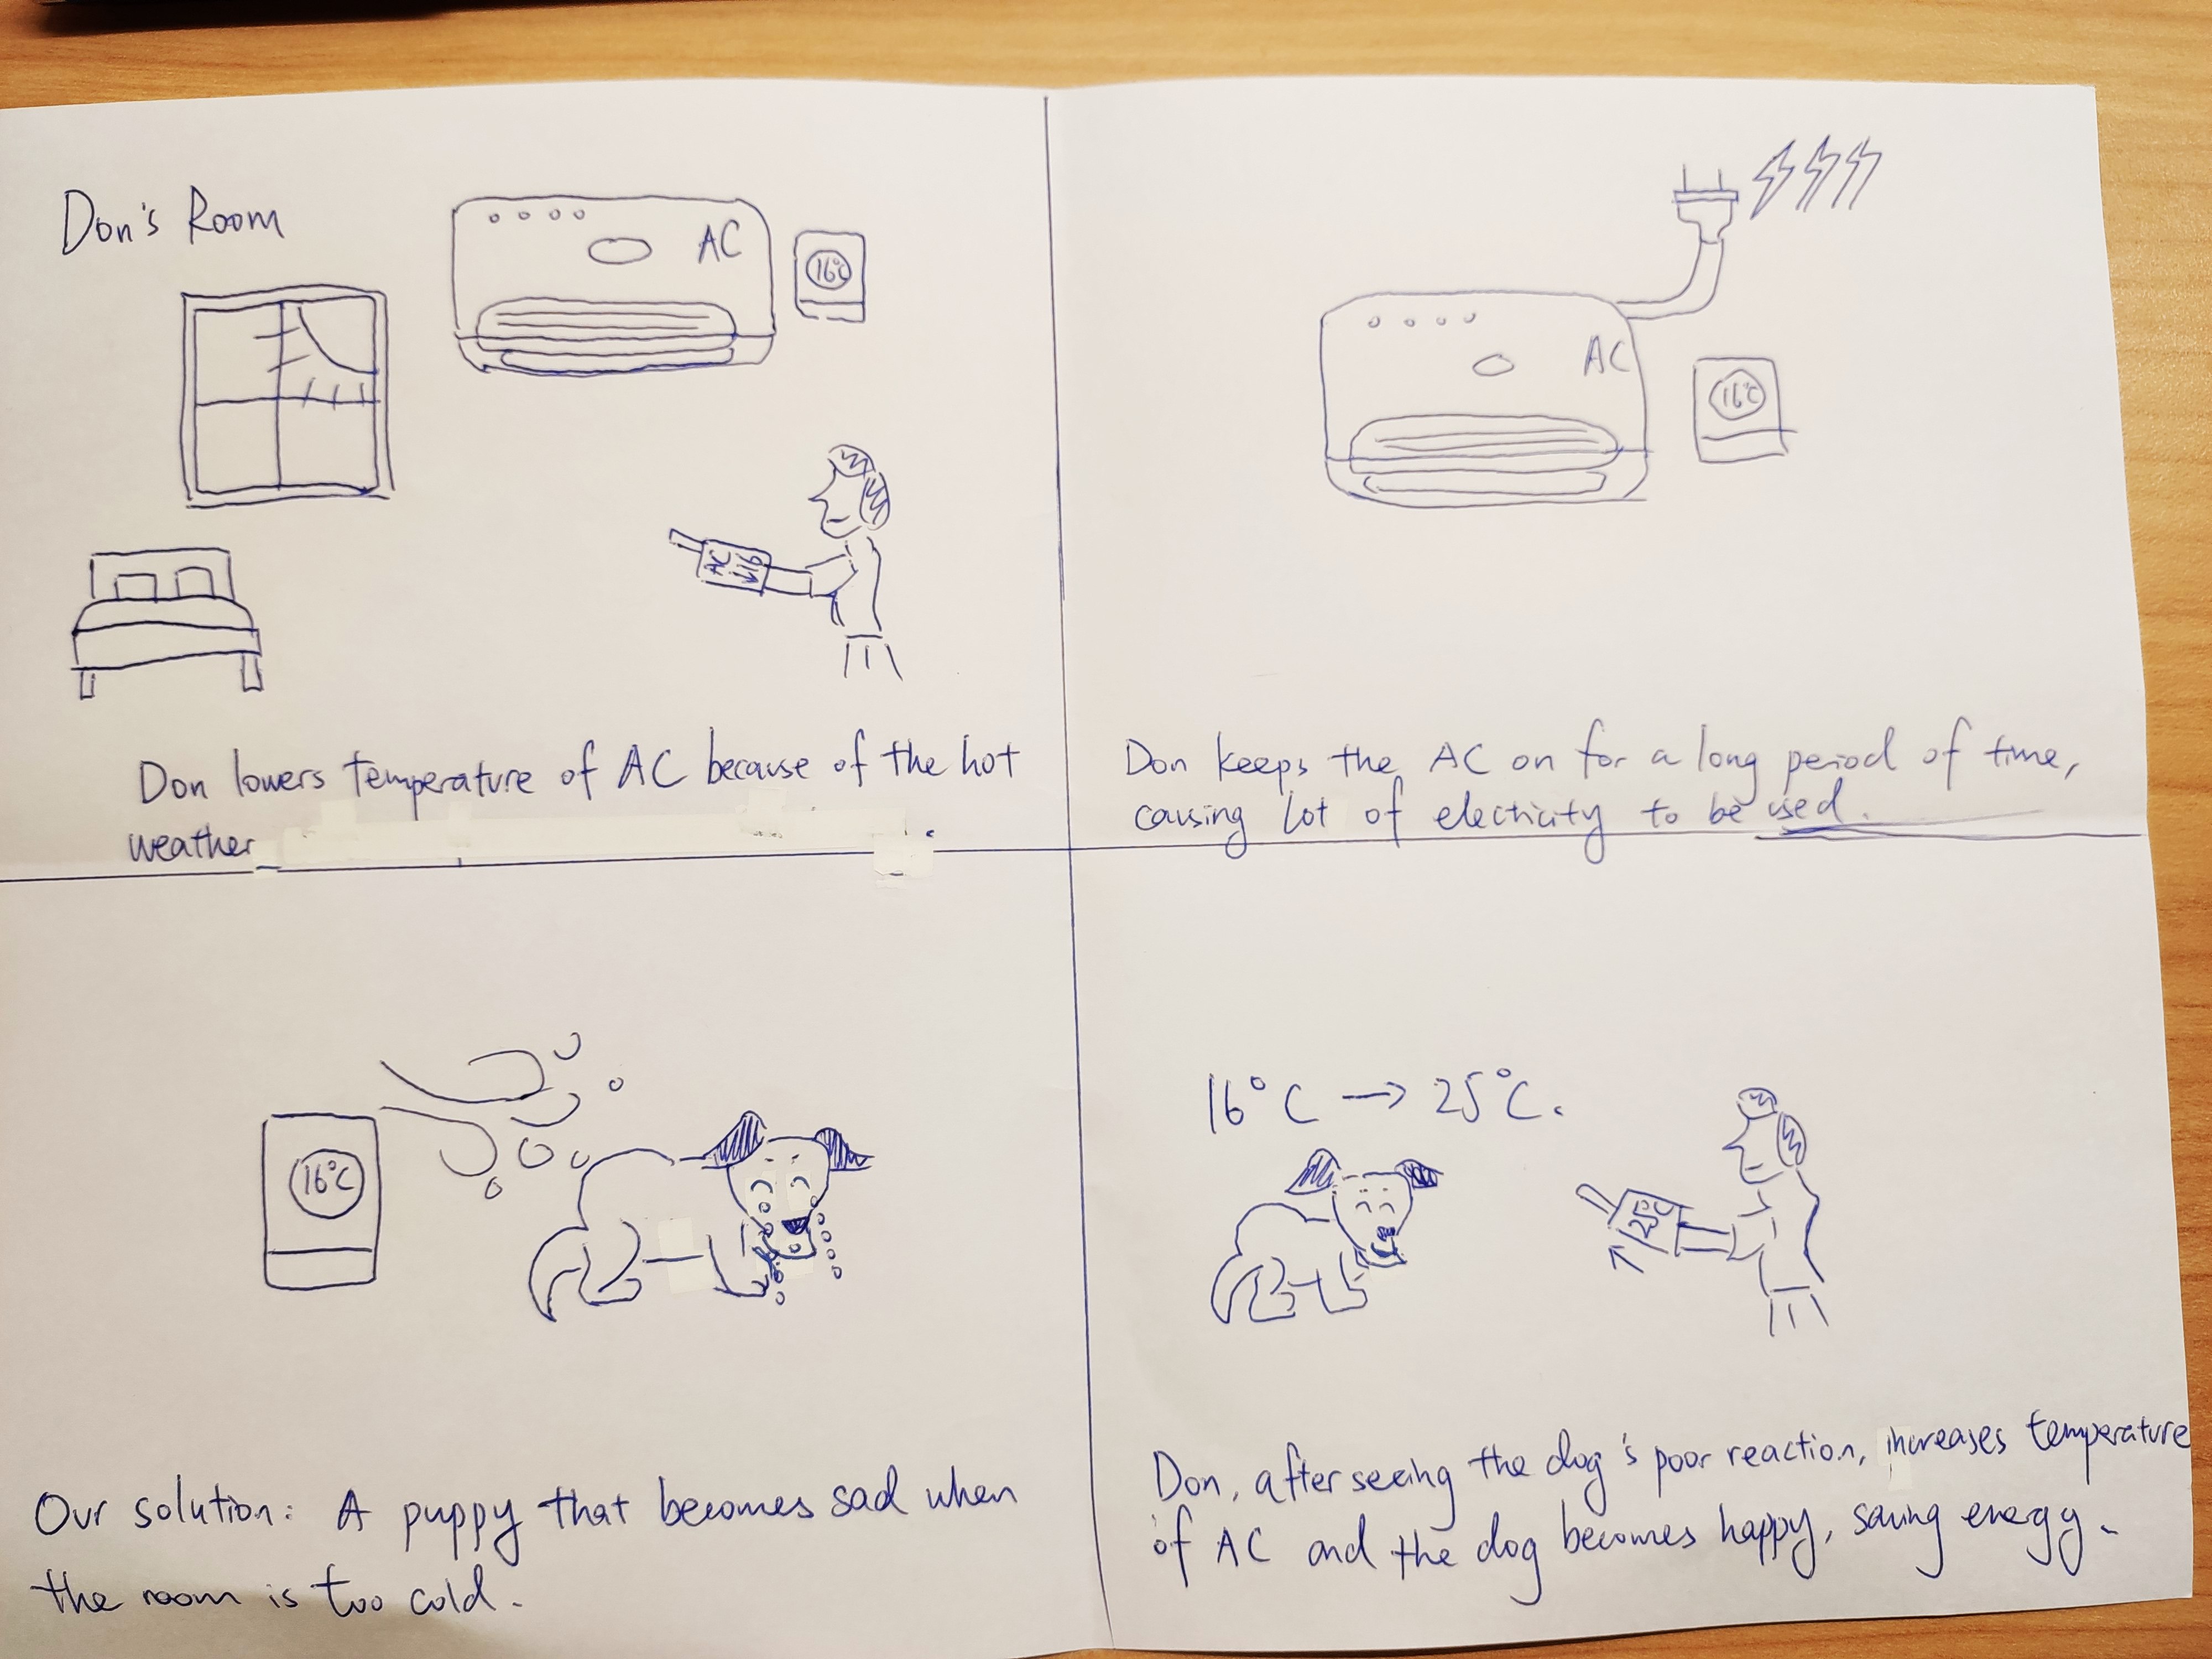 Don's Room
AC
16°C
AC
↓16
Don lowers temperature of AC because of the hot
weather .
AC
16°C
Don keeps the AC on for a long period of time,
causing lot of electicity to be used.
16°C
Our solution: A puppy that becomes sad when
the room is too cold.
16°C → 25°C.
25°C
Don, after seeing the dog's poor reaction, increases temperature
of AC and the dog becomes happy, saving energy.